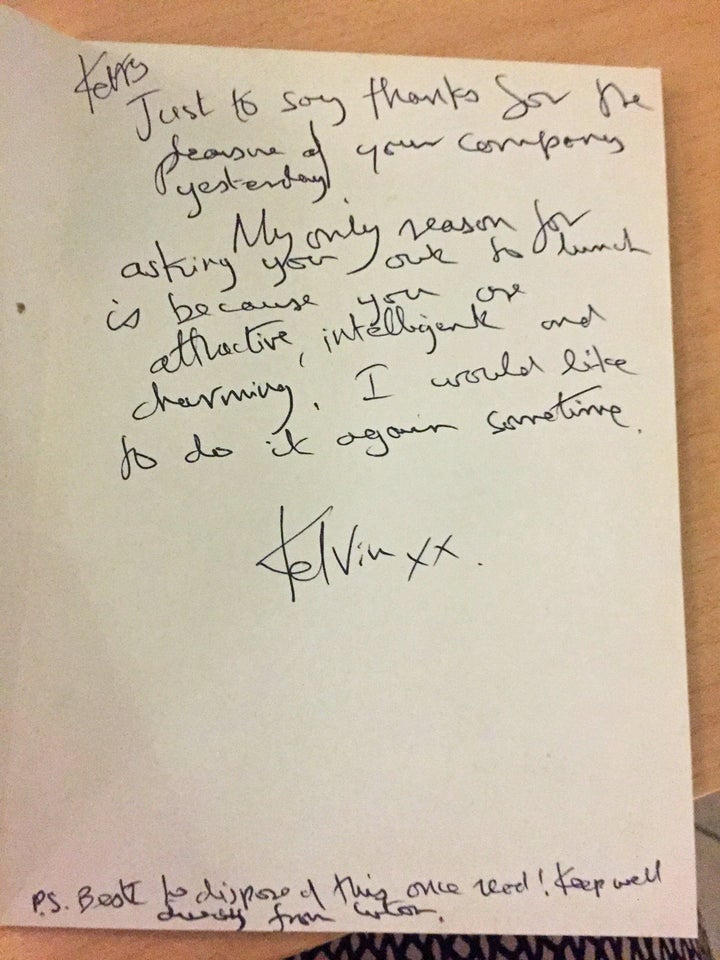 Kerry
Just to say thanks for the
pleasure of your company
yesterday.
My only reason for
asking you out to lunch
is because you are
attractive, intelligent and
charming. I would like
to do it again sometime.
Kelvin xx.
P.S. Best to dispose of this once read! Keep well
away from